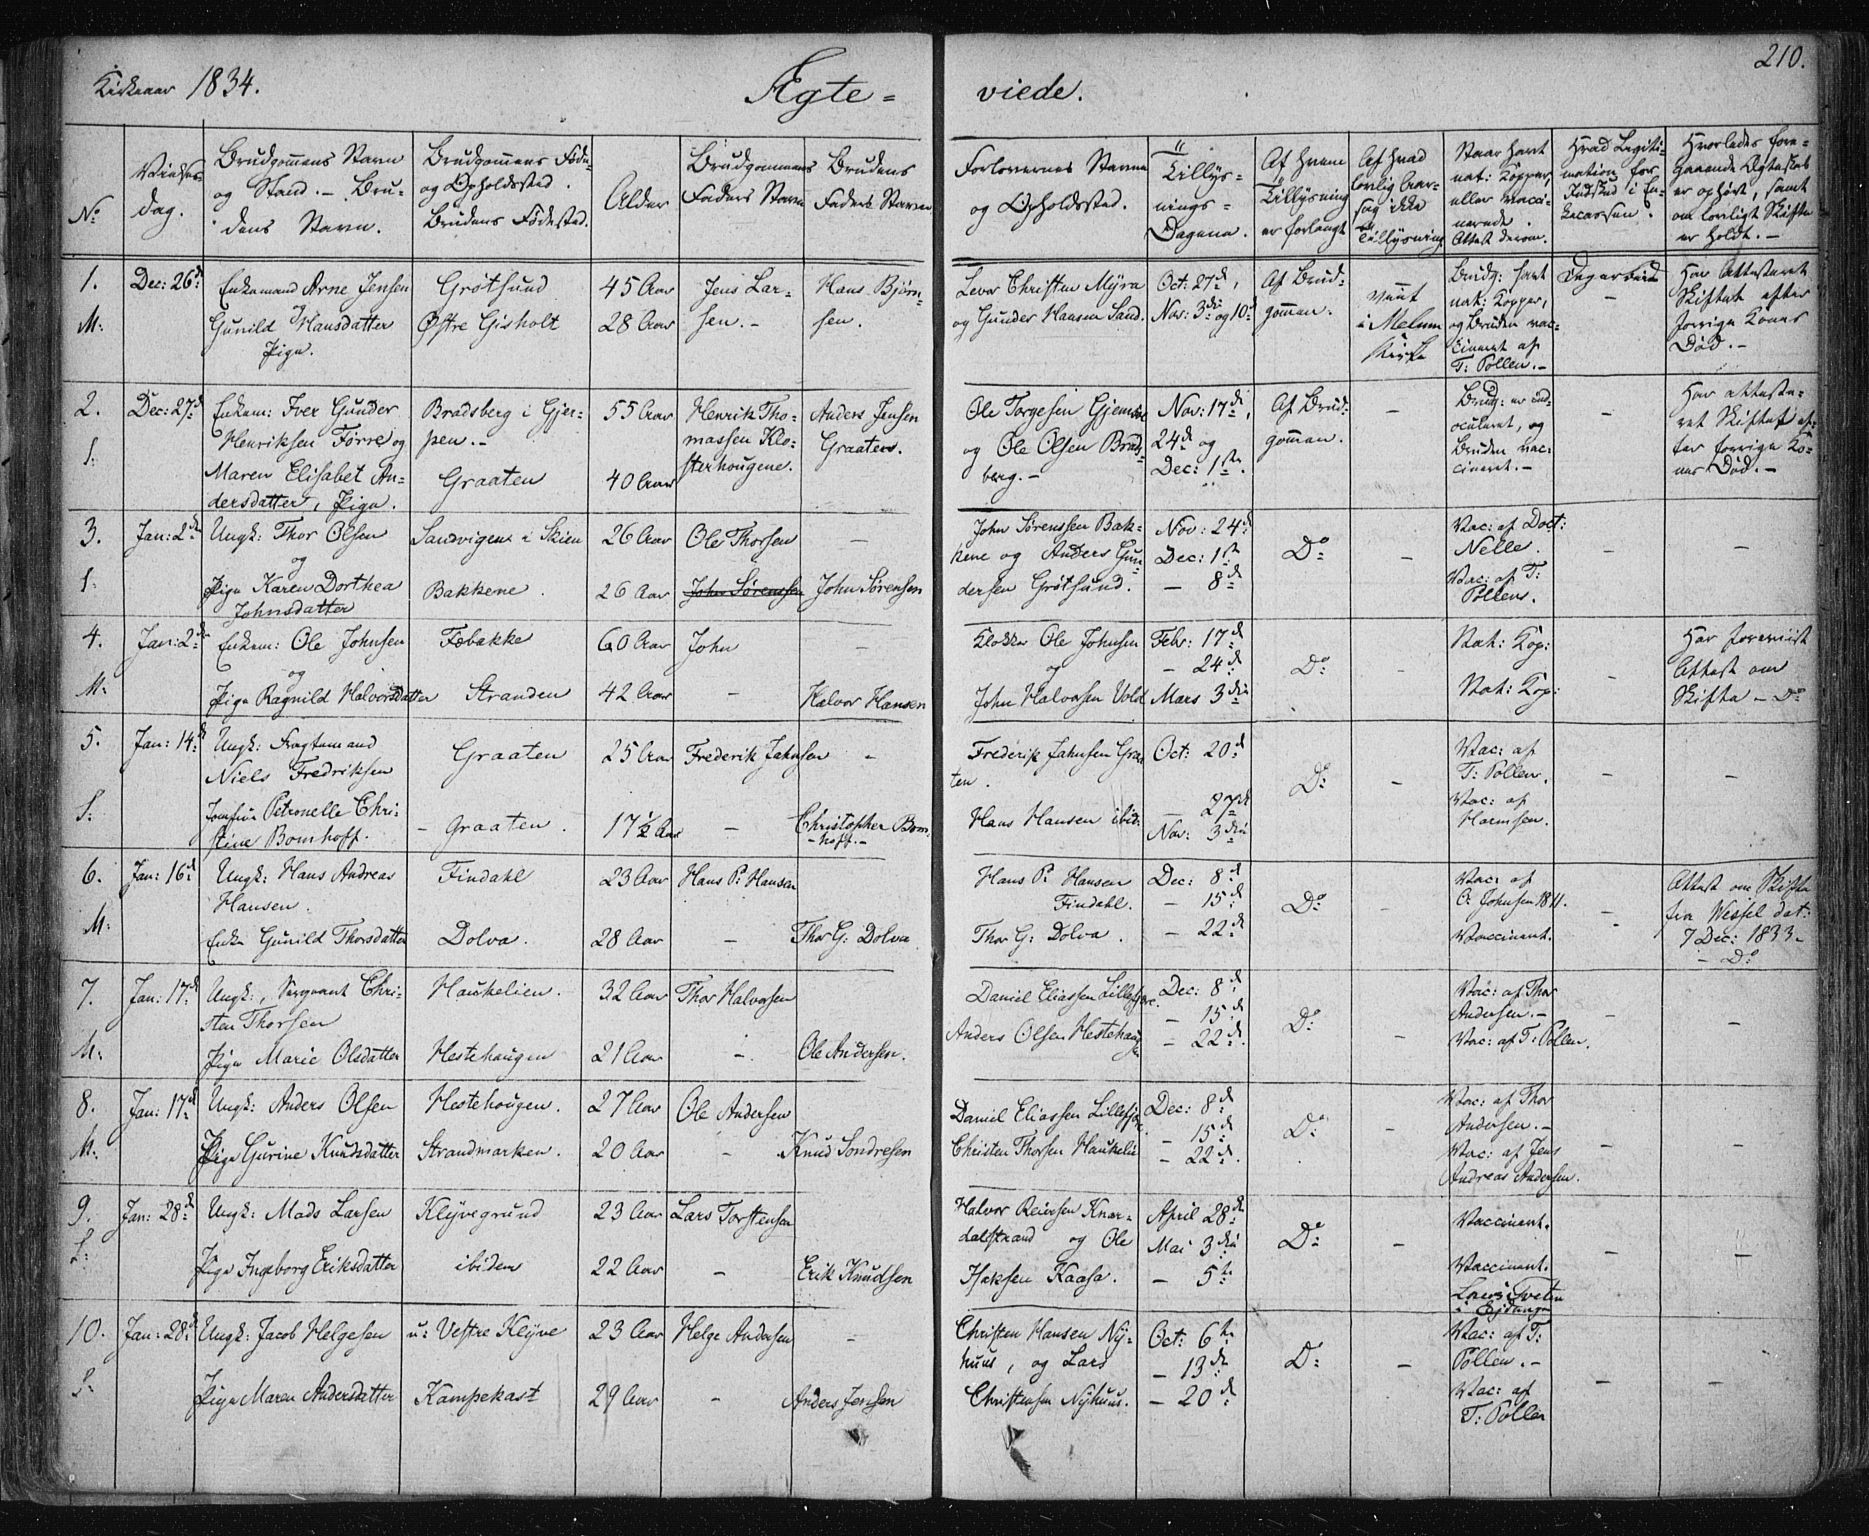 210.
Kirkeaar 1834. Ægte = viede.
No
Vielses-
dag.
Brudgommens Navn
og Stand. - Bru-
dens Navn.
Brudgommens Føde-
og Opholdssted.
Brudens Fødested.
Alder
Brudgommens
Faders Navn
Brudens
Faders Navn
Forlovernes Navne
og Opholdssted.
Tillys-
nings-
Dagene.
Af hvem
Tillysning
er forlangt
Af hvad
lovlig Aar-
sag ikke
Tillysning
Naar havt
nat: Kopper,
eller vacci-
nerede.
Attest derom.
Hvad Legiti-
mation for
Indskud i En-
kecassen.
Hvorledes fore-
gaaende Ægteskab
er ophørt, samt
om lovligt Skifte
er holdt. -
1.
M.
Dec: 26d:
Enkemand Arne Jensen
og
Gunild Hansdatter
Pige.
Grøtsund
Østre Gisholt
45 Aar
28 Aar
Jens Lar-
sen. -
Hans Bjørn-
sen.
Christen Myra
og Gunder Hansen Sand.
Oct: 27d,
Nov: 3die og 10d
Af Brud-
gommen.
viet
i Melum
Kirke
Brudg: havt
nat: Kopper,
og Bruden vac-
cineret af
T: Pollen. -
-
Har Attesteret
Skiftet efter
forrige Kones
Død. -
2.
S.
Dec: 27d
Enkem: Iver Gunder
Henriksen Førre og
Maren Elisabet An-
dersdatter, Pige.
Bradsberg i Gjer-
pen. -
Graaten
55 Aar
40 Aar
Henrik Tho-
massen Klo-
sterhougene.
Anders Jensen
Graaten.
Ole Torgesen
og Ole Olsen Brads-
berg. -
Nov: 17d,
24d og
Dec: 1ste.
Af Brud-
gommen.
-
Brudg: er ind-
oculeret, og
Bruden vac-
cineret. -
-
Har atteste-
ret Skiftet ef-
ter forrige Ko-
nes Død. -
3.
S.
Jan: 2d
Ungk: Thor Olsen
og
Pige Karen Dorthea
Johnsdatter
Sandvigen i Skien
Bakkene.
26 Aar
26 Aar
Ole Thorsen
John Sørenssen
-
John Sørensen
John Sørenssen Bak-
kene og Anders Gun-
dersen Grøtsund.
Nov: 24d
Dec: 1ste
- 8d
Do
-
Vac: af Doct:
Nelle.
Vac: af T:
Pollens.
-
-
4.
M.
Jan: 2d
Enkem: Ole Johnsen
og
Pige Ragnild Halvorsdatter
Fæbakke
Stranden
60 Aar
42 Aar
John
-
-
Halvor Hansen
Klokker Ole Johnsen
og
John Halvorsen Vold
Febr: 17d
- 24d
Mars 3die
Do
-
Nat: Kop:
Nat: Kop:
-
Har foreviist
Attest om
Skifte - Do
5.
S.
Jan: 14d
Ungk: Fragtemand
Niels Fredriksen
Jomfru Petronelle Chri-
stine Bomhoff.
Graaten
- Graaten.
25 Aar
17 1/2 Aar
Frederik Jahnsen
-
-
Christopher Bom-
hoff. -
Frederik Jahnsen Graa-
ten.
Hans Hansen ibid:
Oct: 20d
- 27d
Nov: 3die
Do
-
Vac: af
T: Pollen.
Vac: af
Harmsen.
-
-
6.
M.
Jan: 16d
Ungk: Hans Andreas
Hansen.
Enke Gunild Thorsdatter
Findahl
Dolva.
23 Aar
28 Aar
Hans P: Hansen
-
Thor G: Dolva
Hans P: Hansen
Findahl.
Thor G: Dolva.
Dec: 8d
- 15d
- 22d
Do
-
Vac: af
O: Johnsen 1811.
Vaccineret.
-
Attest om Skifte
fra Wessel dat:
7 Dec: 1833 -
- Do
7.
M.
Jan: 17d
Ungk:, Sergeant Chri-
sten Thorsen
Pige Marie Olsdatter
Haukelien.
Hestehaugen
32 Aar
21 Aar
Thor Halvorsen
-
Ole Andersen.
Daniel Eliassen
Anders Olsen Hestehaugen
Dec: 8d
- 15d
- 22d.
Do
-
Vac: af Thor
Andersen. -
Vac: af T: Pollen.
-
-
8.
M.
Jan: 17d
Ungk: Anders Olsen
Pige Gurine Knudsdatter
Hestehougen.
Strandmarken.
27 Aar
20 Aar
Ole Andersen
-
Knud Sondresen
Daniel Eliassen
Christen Thorsen Haukelie
Dec: 8d
- 15d
- 22d.
Do
-
Vac: af Thor
Andersen. -
Vac: af Jens
Andreas Andersen.
-
-
9.
S.
Jan: 28d
Ungk: Mads Larsen
Pige Ingeborg Eriksdatter
Klyvegrund
ibidem
23 Aar
22 Aar
Lars Torstensen
-
Erik Knudsen
Halvor Reiersen Knar-
dalstrand og Ole
Isaksen Kaasa.
April 28d
Mai 3die
- 5te
Do
-
Vaccineret.
Vaccineret.
Tveten
i Eidanger
-
-
10.
S.
Jan: 28d
Ungk: Jacob Helgesen
Pige Maren Andersdatter
u: Vestre Klyve
Kampekast
23 Aar
29 Aar
Helge Andersen
-
-
Anders Jensen
Christen Hansen Ny-
huus, og Lars
Christensen Nyhuus.
Oct: 6te
- 13de
- 20d
Do
-
Vac: af T:
Pollen. -
Vac: af
T: Pollen
-
-